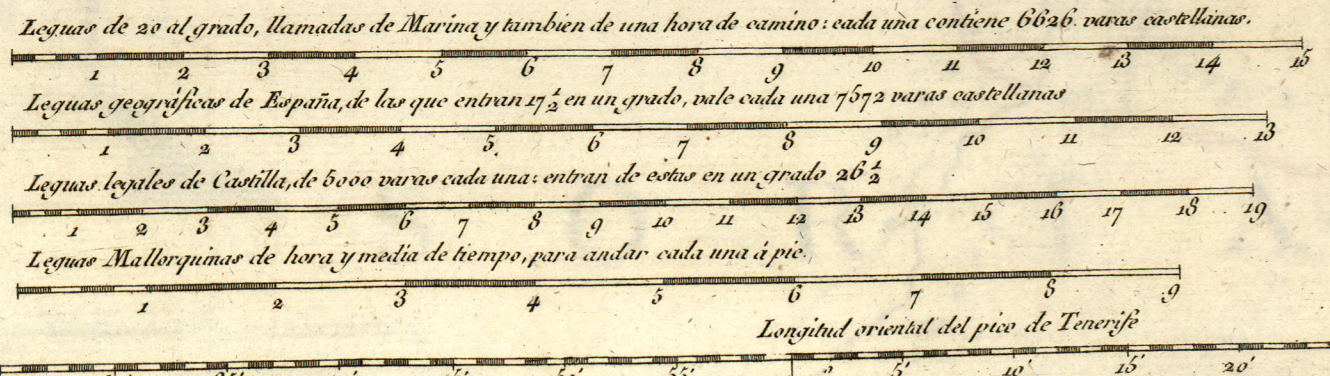 Leguas de 20 al grado, llamadas de Marina y tambien de una hora de camino: cada una contiene 6626. varas castellanas.
1 2 3 4 5 6 7 8 9 10 11 12 13 14 15
Leguas geográficas de España, de las que entran 17 1/2 en un grado, vale cada una 7572 varas castellanas
1 2 3 4 5 6 7 8 9 10 11 12 13
Leguas legales de Castilla, de 5000 varas cada una: entran de estas en un grado 26 1/2
1 2 3 4 5 6 7 8 9 10 11 12 13 14 15 16 17 18 19
Leguas Mallorquinas de hora y media de tiempo, para andar cada una á pie.
1 2 3 4 5 6 7 8 9
Longitud oriental del pico de Tenerife
5' 10' 15' 20'